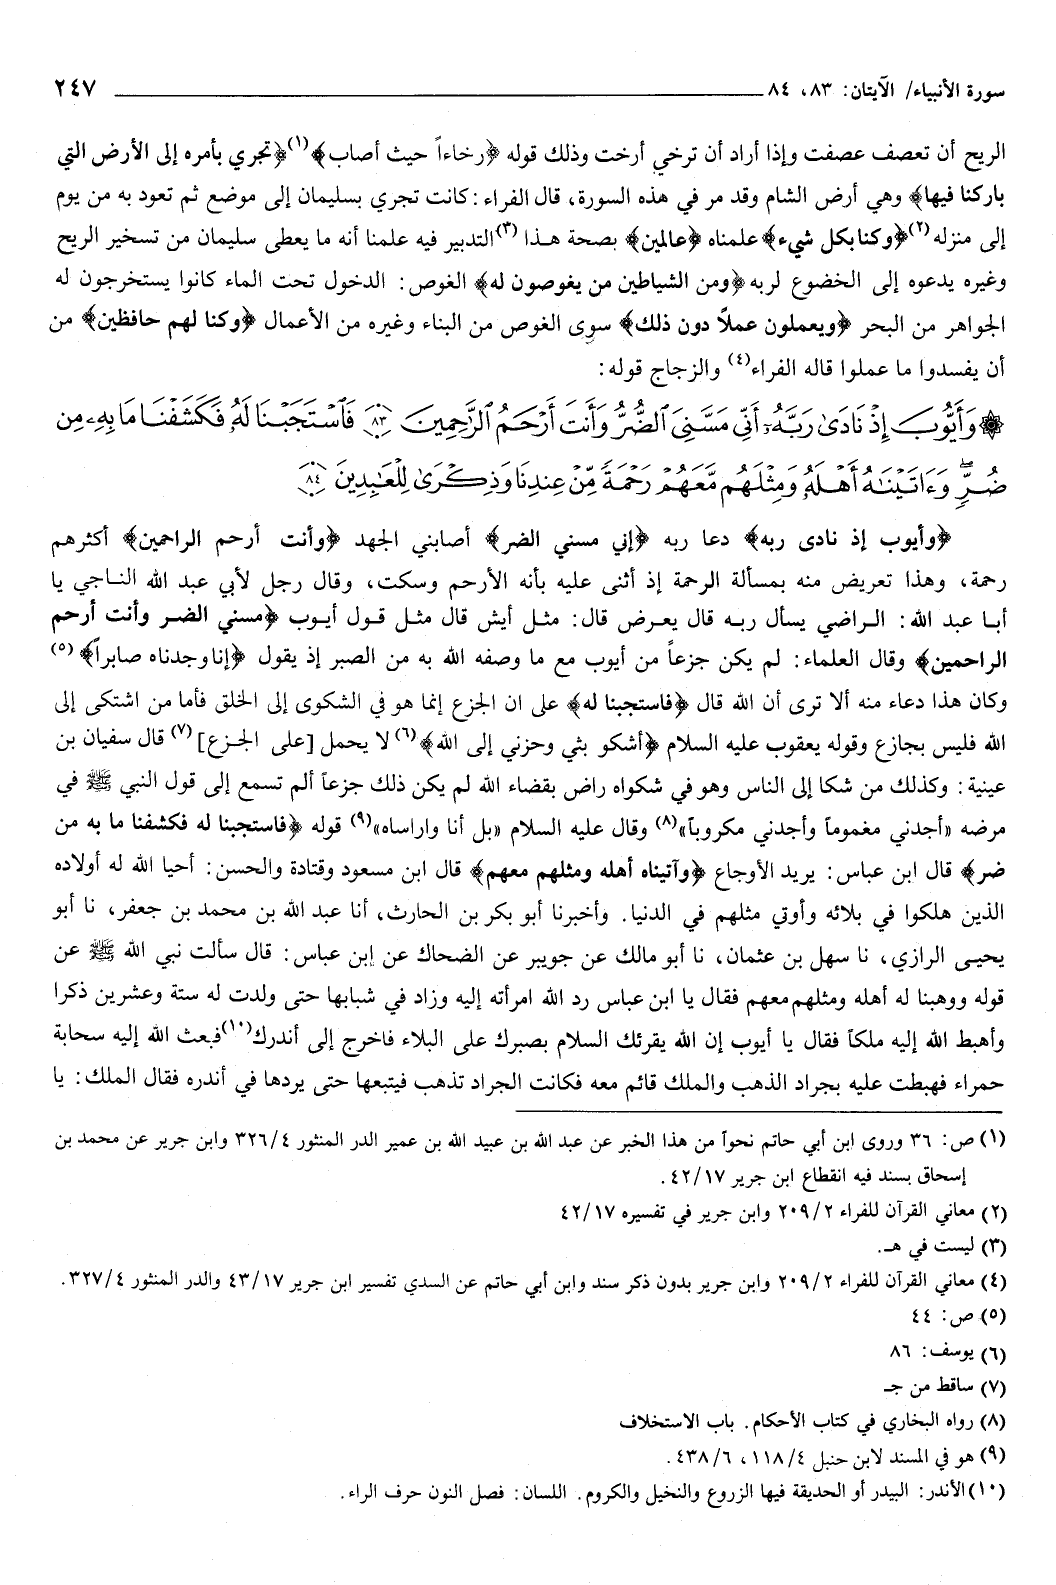 سورة الأنبياء/ الآيتان: ٨٣، ٨٤ ٢٤٧
الريح أن تعصف عصفت وإذا أراد أن ترخي أرخت وذلك قوله ﴿رخاءاً حيث أصاب﴾(١)﴿تجري بأمره إلى الأرض التي
باركنا فيها﴾ وهي أرض الشام وقد مر في هذه السورة، قال الفراء: كانت تجري بسليمان إلى موضع ثم تعود به من يوم
إلى منزله(٢)﴿وكنا بكل شيء﴾ علمناه ﴿عالمين﴾ بصحة هذا (٣)التدبير فيه علمنا أنه ما يعطى سليمان من تسخير الريح
وغيره يدعوه إلى الخضوع لربه ﴿ومن الشياطين من يغوصون له﴾ الغوص: الدخول تحت الماء كانوا يستخرجون له
الجواهر من البحر ﴿ويعملون عملاً دون ذلك﴾ سوى الغوص من البناء وغيره من الأعمال ﴿وكنا لهم حافظين﴾ من
أن يفسدوا ما عملوا قاله الفراء(٤) والزجاج قوله:
۞ وَأَيُّوبَ إِذْ نَادَىٰ رَبَّهُۥٓ أَنِّي مَسَّنِيَ ٱلضُّرُّ وَأَنتَ أَرْحَمُ ٱلرَّٰحِمِينَ ٨٣ فَٱسْتَجَبْنَا لَهُۥ فَكَشَفْنَا مَا بِهِۦ مِن
ضُرٍّۖ وَءَاتَيْنَٰهُ أَهْلَهُۥ وَمِثْلَهُم مَّعَهُمْ رَحْمَةً مِّنْ عِندِنَا وَذِكْرَىٰ لِلْعَٰبِدِينَ ٨٤
﴿وأيوب إذ نادى ربه﴾ دعا ربه ﴿إني مسني الضر﴾ أصابني الجهد ﴿وأنت أرحم الراحمين﴾ أكثرهم
رحمة، وهذا تعريض منه بمسألة الرحمة إذ أثنى عليه بأنه الأرحم وسكت، وقال رجل لأبي عبد الله الناجي يا
أبا عبد الله: الراضي يسأل ربه قال يعرض قال: مثل أيش قال مثل قول أيوب ﴿مسني الضر وأنت أرحم
الراحمين﴾ وقال العلماء: لم يكن جزعاً من أيوب مع ما وصفه الله به من الصبر إذ يقول ﴿إنا وجدناه صابراً﴾(٥)
وكان هذا دعاء منه ألا ترى أن الله قال ﴿فاستجبنا له﴾ على ان الجزع إنما هو في الشكوى إلى الخلق فأما من اشتكى إلى
الله فليس بجازع وقوله يعقوب عليه السلام ﴿أشكو بثي وحزني إلى الله﴾(٦) لا يحمل [على الجزع](٧) قال سفيان بن
عينية: وكذلك من شكا إلى الناس وهو في شكواه راض بقضاء الله لم يكن ذلك جزعاً ألم تسمع إلى قول النبي ﷺ في
مرضه «أجدني مغموماً وأجدني مكروباً»(٨) وقال عليه السلام «بل أنا واراساه»(٩) قوله ﴿فاستجبنا له فكشفنا ما به من
ضر﴾ قال ابن عباس: يريد الأوجاع ﴿وآتيناه أهله ومثلهم معهم﴾ قال ابن مسعود وقتادة والحسن: أحيا الله له أولاده
الذين هلكوا في بلائه وأوتي مثلهم في الدنيا. وأخبرنا أبو بكر بن الحارث، أنا عبد الله بن محمد بن جعفر، نا أبو
يحيى الرازي، نا سهل بن عثمان، نا أبو مالك عن جويبر عن الضحاك عن إبن عباس: قال سألت نبي الله ﷺ عن
قوله ووهبنا له أهله ومثلهم معهم فقال يا ابن عباس رد الله امرأته إليه وزاد في شبابها حتى ولدت له ستة وعشرين ذكرا
وأهبط الله إليه ملكاً فقال يا أيوب إن الله يقرئك السلام بصبرك على البلاء فاخرج إلى أندرك(١٠)فبعث الله إليه سحابة
حمراء فهبطت عليه بجراد الذهب والملك قائم معه فكانت الجراد تذهب فيتبعها حتى يردها في أندره فقال الملك: يا
(١) ص: ٣٦ وروى ابن أبي حاتم نحواً من هذا الخبر عن عبد الله بن عبيد الله بن عمير الدر المنثور ٣٢٦/٤ وابن جرير عن محمد بن
إسحاق بسند فيه انقطاع ابن جرير ٤٢/١٧.
(٢) معاني القرآن للفراء ٢٠٩/٢ وابن جرير في تفسيره ٤٢/١٧
(٣) ليست في هـ.
(٤) معاني القرآن للفراء ٢٠٩/٢ وابن جرير بدون ذكر سند وابن أبي حاتم عن السدي تفسير ابن جرير ٤٣/١٧ والدر المنثور ٣٢٧/٤.
(٥) ص: ٤٤
(٦) يوسف: ٨٦
(٧) ساقط من جـ
(٨) رواه البخاري في كتاب الأحكام. باب الاستخلاف
(٩) هو في المسند لابن حنبل ١١٨/٤، ٤٣٨/٦.
(١٠) الأندر: البيدر أو الحديقة فيها الزروع والنخيل والكروم. اللسان: فصل النون حرف الراء.